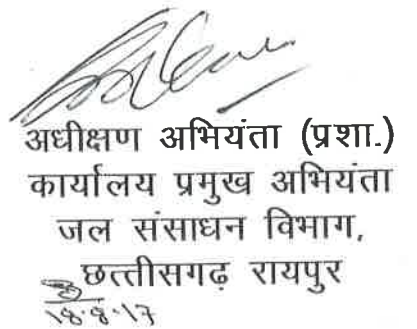 अधीक्षण अभियंता (प्रशा.)
कार्यालय प्रमुख अभियंता
जल संसाधन विभाग,
छत्तीसगढ़ रायपुर
18.8.17